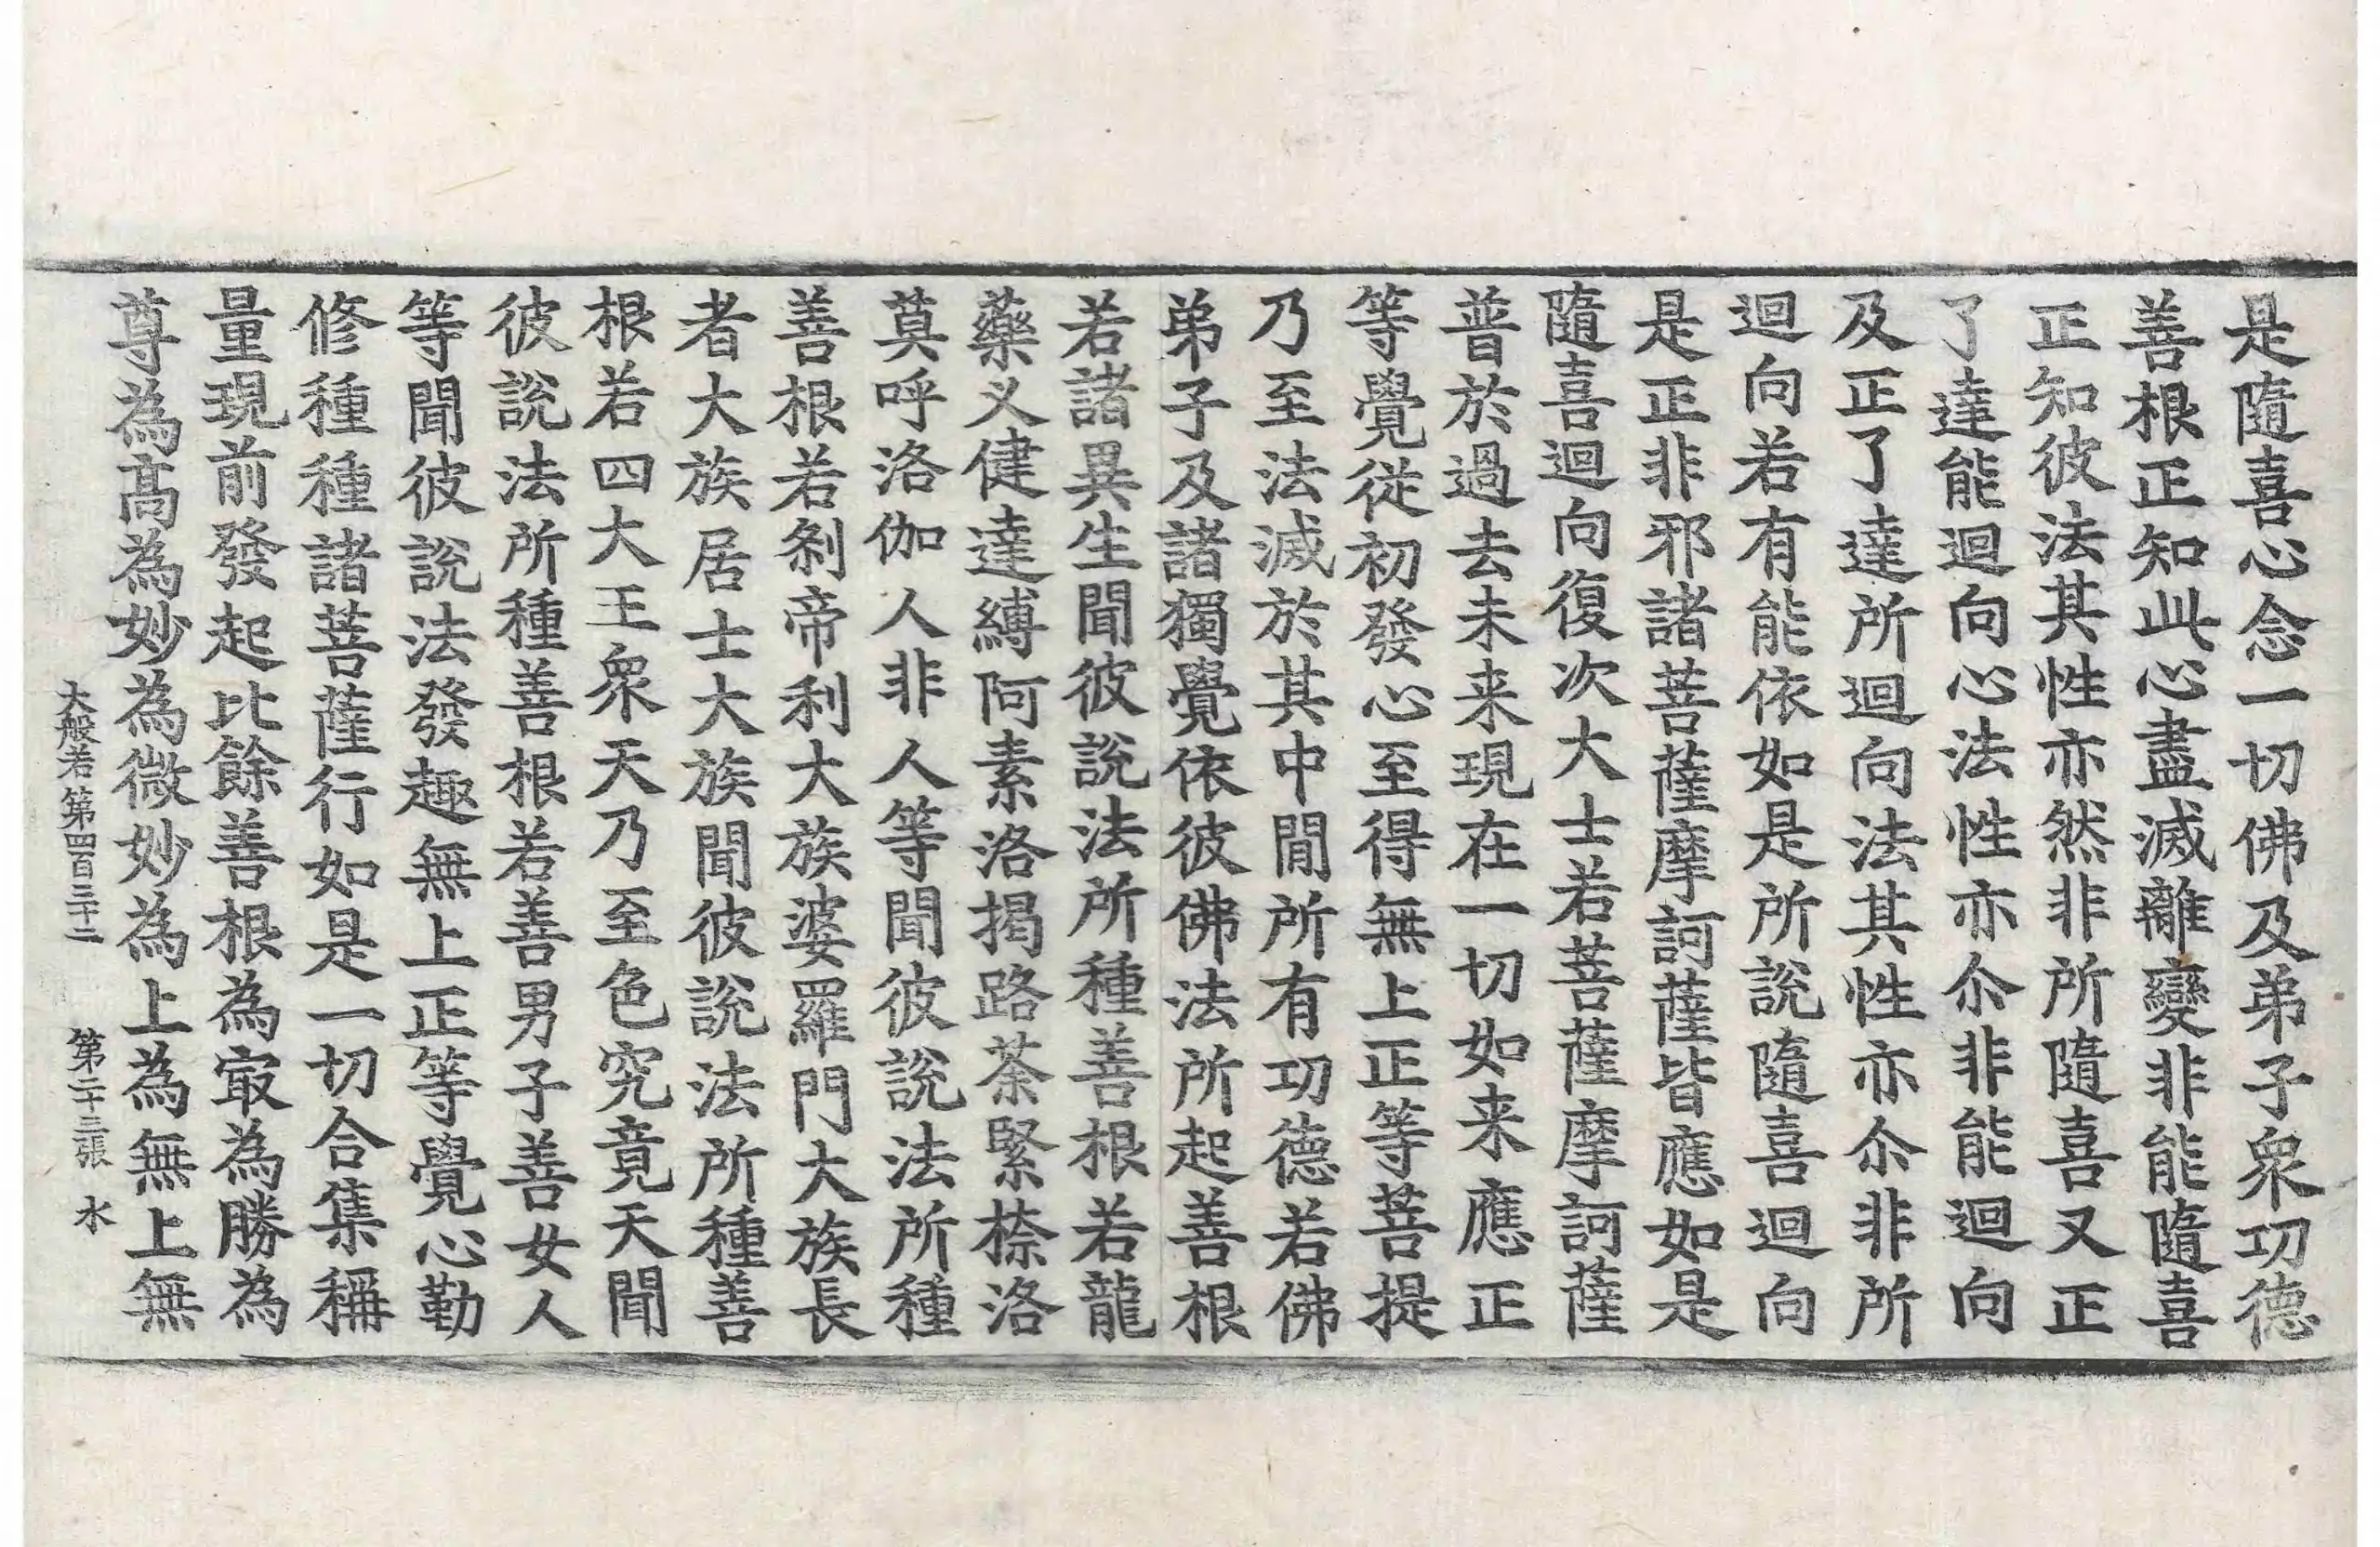 是隨喜心念一切佛及弟子衆功德
善根正知此心盡滅離變非能隨喜
正知彼法其性亦然非所隨喜又正
了達能迴向心法性亦尒非能迴向
及正了達所迴向法其性亦尒非所
迴向若有能依如是所說隨喜迴向
是正非邪諸菩薩摩訶薩皆應如是
隨喜迴向復次大士若菩薩摩訶薩
普於過去未来現在一切如来應正
等覺從初發心至得無上正等菩提
乃至法滅於其中閒所有功德若佛
弟子及諸獨覺依彼佛法所起善根
若諸異生聞彼說法所種善根若龍
藥叉健達縛阿素洛揭路荼緊㮈洛
莫呼洛伽人非人等聞彼說法所種
善根若剎帝利大族婆羅門大族長
者大族居士大族聞彼說法所種善
根若四大王衆天乃至色究竟天聞
彼說法所種善根若善男子善女人
等聞彼說法發趣無上正等覺心勤
修種種諸菩薩行如是一切合集稱
量現前發起比餘善根為㝡為勝為
尊為髙為妙為微妙為上為無上無
大般若第四百三十二 第二十三張 水